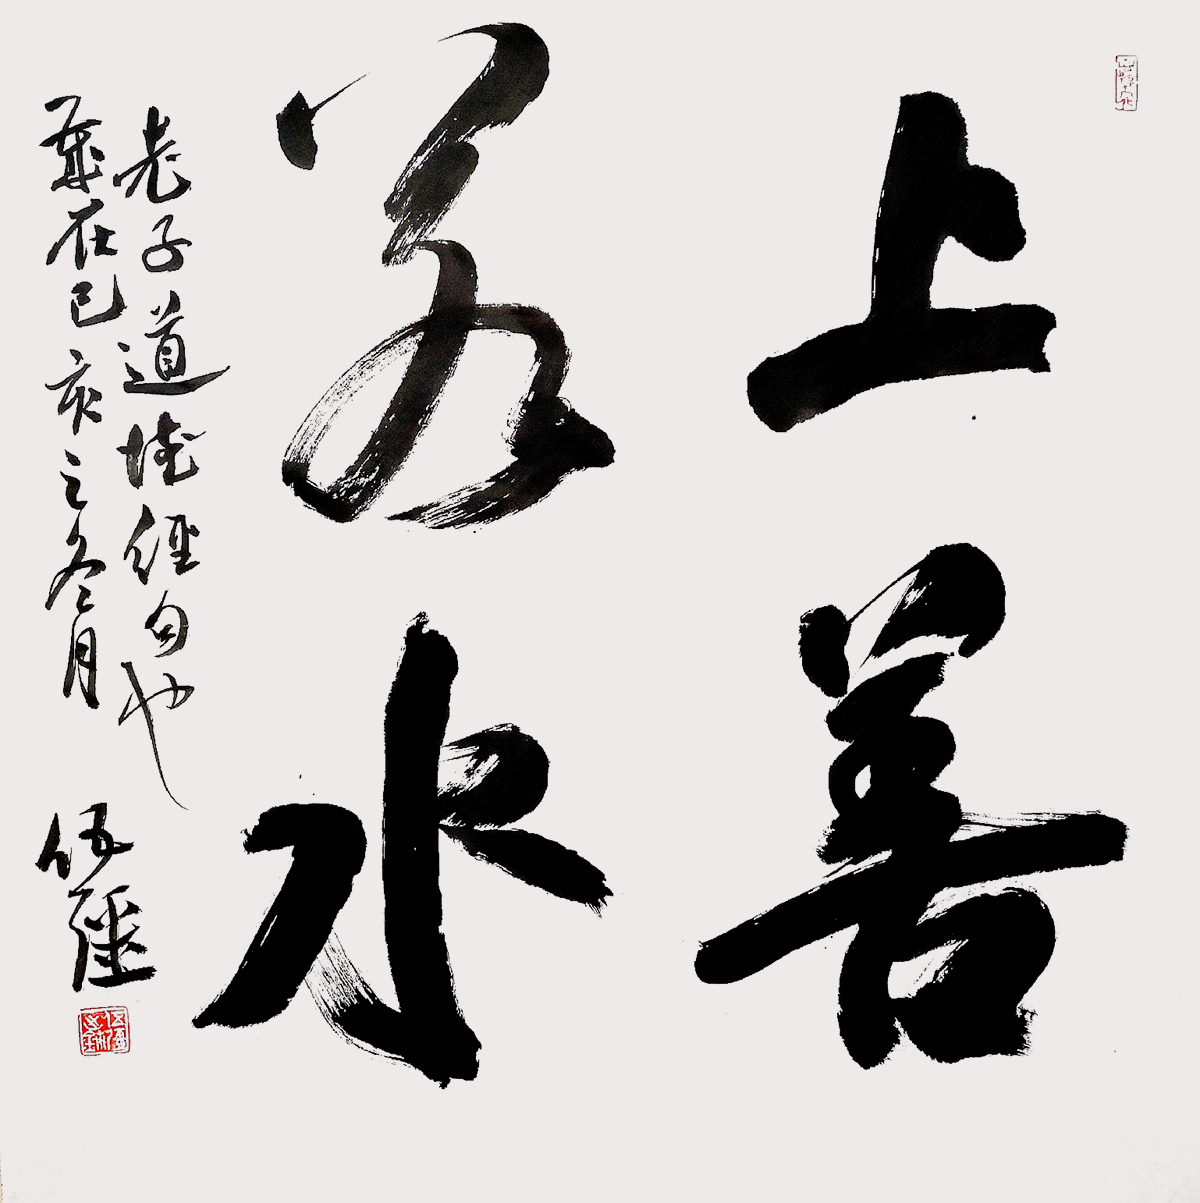 上善
若水
老子道德经句也
岁在己亥之冬月
伍疆